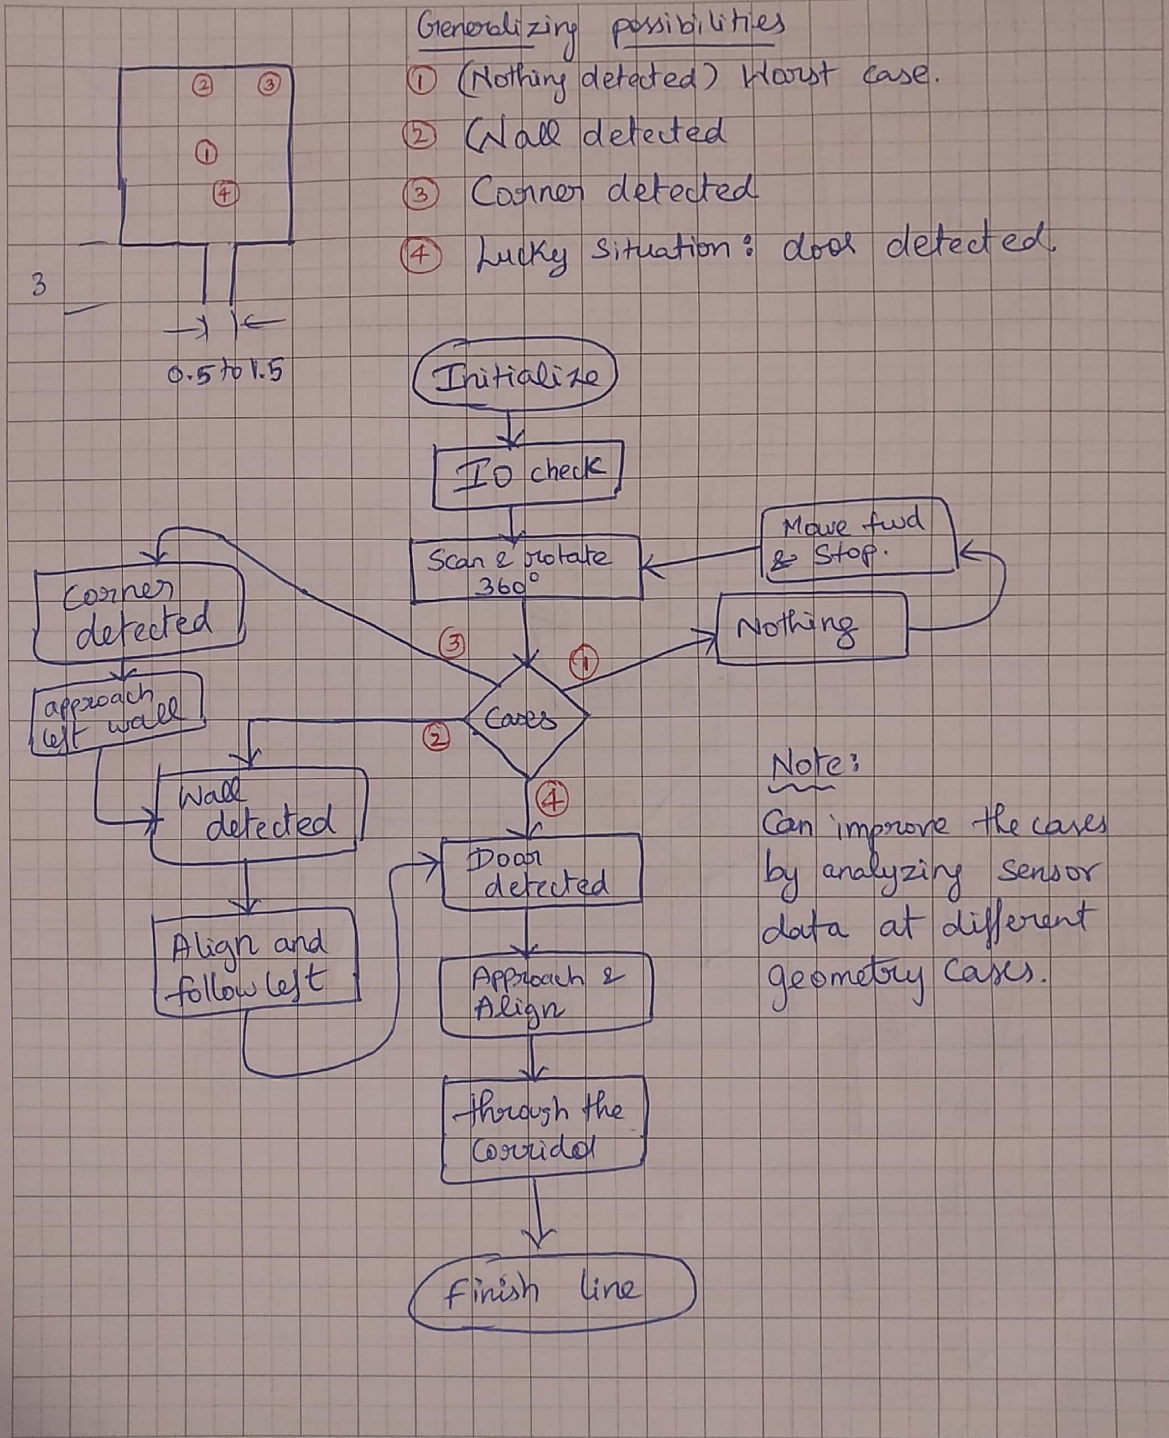 Generalizing possibilities
① (Nothing detected) Worst case.
② Wall detected
③ Corner detected
④ Lucky Situation: door detected.
② ③
①
④
3
0.5 to 1.5
Initialize
IO check
Scan & rotate
360°
Move fwd
& Stop.
Nothing
Corner
detected
③
①
approach
left wall
Cases
②
④
Wall
detected
Door
detected
Align and
follow left
Approach &
Align
through the
Corridor
Finish line
Note:
Can improve the cases
by analyzing sensor
data at different
geometry cases.